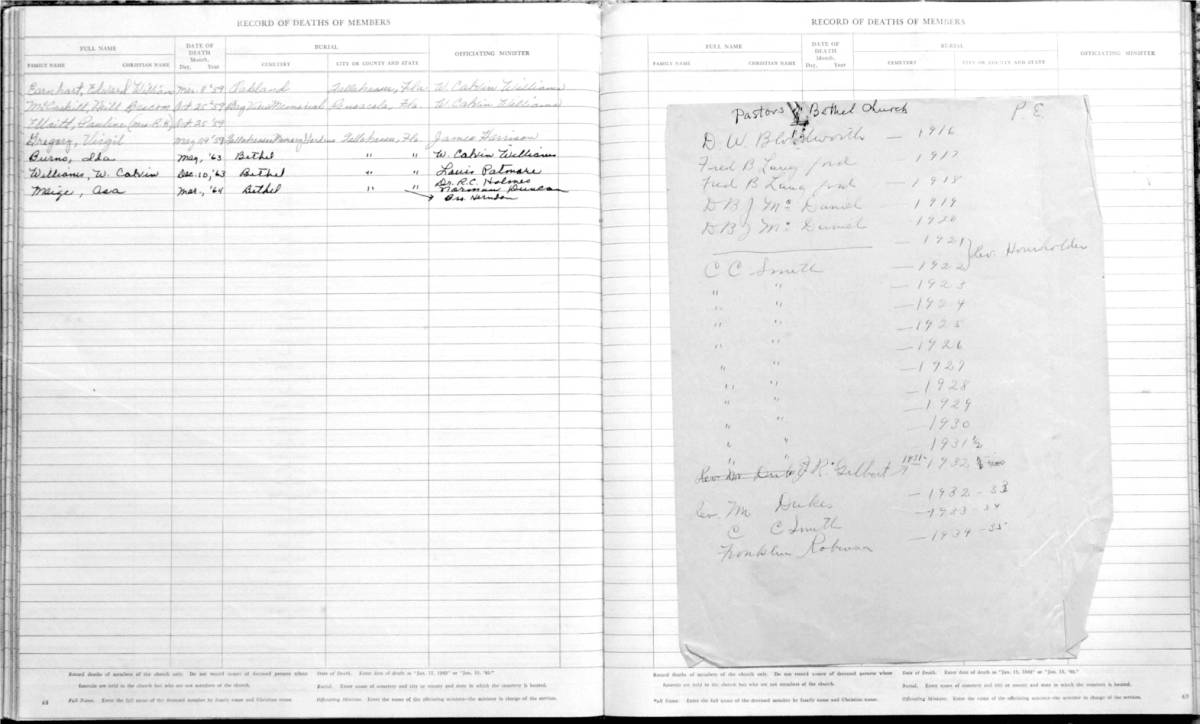 RECORD OF DEATHS OF MEMBERS
FULL NAME DATE OF DEATH BURIAL OFFICIATING MINISTER
FAMILY NAME CHRISTIAN NAME Month, Day, Year CEMETERY CITY OR COUNTY AND STATE
Earnhart, Edward William Mar. 8 '59 Oakland Tallahassee, Fla. W. Calvin Williams
McCaskill, Neill Bascom Oct 25 '59 Bay View Memorial Pensacola, Fla. W. Calvin Williams
Pauline (Mrs. R.H.) Oct 25 '59
Gregory, Virgil May 24 '59 Tallahassee Memory Gardens Tallahassee, Fla. James Harrison
Burns, Ida May, '63 Bethel " " W. Calvin Williams
Williams, W. Calvin Dec. 10, '63 Bethel " " Louis Patmore
Dr. R.C. Holmes
Maige, Asa Mar., '64 Bethel " " Norman Duncan
Herndon
Record deaths of members of the church only. Do not record names of deceased persons whose
funerals are held in the church but who are not members of the church.
Full Name. Enter the full name of the deceased member by family name and Christian name.
Date of Death. Enter date of death as "Jan. 15, 1940" or "Jan. 15, '40."
Burial. Enter name of cemetery and city or county and state in which the cemetery is located.
Officiating Minister. Enter the name of the officiating minister—the minister in charge of the services.
68
RECORD OF DEATHS OF MEMBERS
FULL NAME DATE OF DEATH BURIAL OFFICIATING MINISTER
FAMILY NAME CHRISTIAN NAME Month, Day, Year CEMETERY CITY OR COUNTY AND STATE
Pastors of Bethel Church P. E.
D. W. Blood worth — 1916
Fred B Laney 1917
Fred B Laney — 1918
D B J Mc Daniel 1919
D B J Mc Daniel 1920
— 1921
Rev. Householder
C C Smith — 1922
" " — 1923
" " — 1924
" " — 1925
" " — 1926
" " — 1927
" " — 1928
" " — 1929
" " — 1930
" " — 1931 1/2
" " J R. Gilbert 1931 — 1932
Rev. M Dukes — 1932 - 33
C C Smith — 1933 - 34
Franklin Robinson — 1934 - 35
Record deaths of members of the church only. Do not record names of deceased persons whose
funerals are held in the church but who are not members of the church.
Full Name. Enter the full name of the deceased member by family name and Christian name.
Date of Death. Enter date of death as "Jan. 15, 1940" or "Jan. 15, '40."
Burial. Enter name of cemetery and city or county and state in which the cemetery is located.
Officiating Minister. Enter the name of the officiating minister—the minister in charge of the services.
69